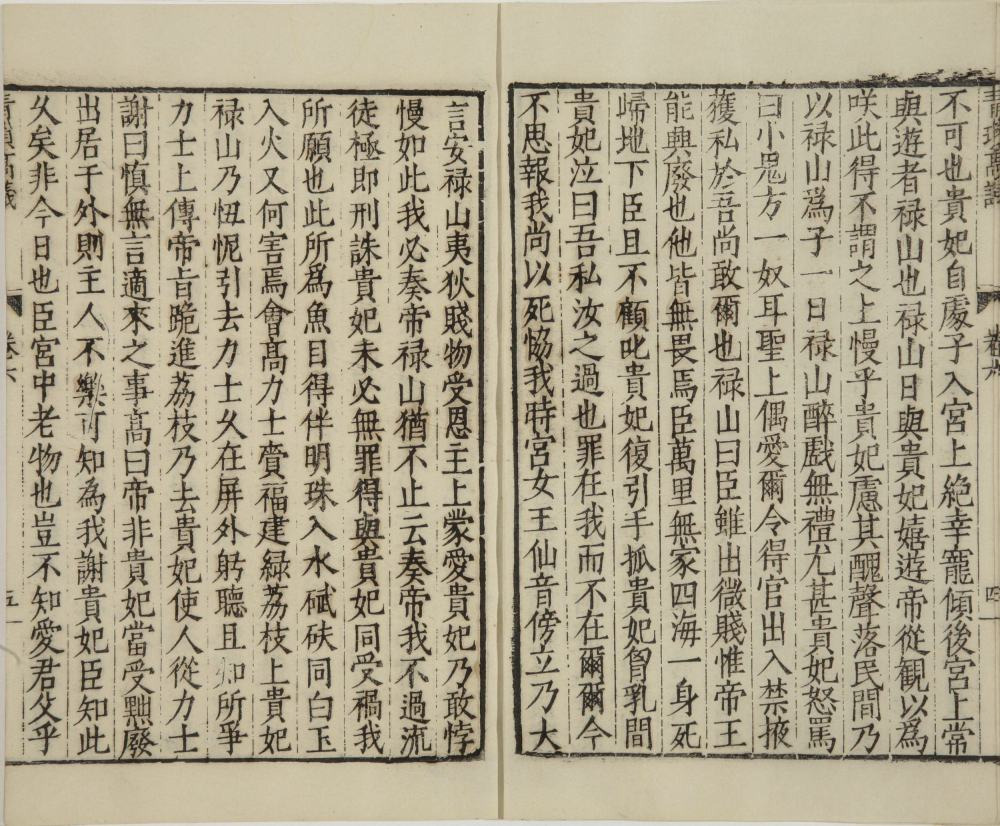 卷六
四
不可也貴妃自處子入宮上絶幸寵傾後宮上常
與遊者禄山也禄山日與貴妃嬉遊帝從観以爲
咲此得不謂之上慢乎貴妃慮其醜聲落民間乃
以禄山爲子一日禄山醉戲無禮尤甚貴妃怒罵
曰小鬼方一奴耳聖上偶愛爾令得官出入禁掖
獲私於吾尚敢爾也禄山曰臣雖出微賤惟帝王
能興廢也他皆無畏焉臣萬里無家四海一身死
歸地下臣且不顧叱貴妃復引手抓貴妃胷乳間
貴妃泣曰吾私汝之過也罪在我而不在爾爾今
不思報我尚以死恊我時宮女王仙音傍立乃大
言安禄山夷狄賤物受恩主上蒙愛貴妃乃敢悖
慢如此我必奏帝禄山猶不止云奏帝我不過流
徒極即刑誅貴妃未必無罪得與貴妃同受禍我
所願也此所爲魚目得伴明珠入水碔砆同白玉
入火又何害焉會髙力士賫福建緑荔枝上貴妃
禄山乃忸怩引去力士乆在屏外躬聽且知所爭
力士上傳帝旨跪進荔枝乃去貴妃使人從力士
謝曰慎無言適來之事髙曰帝非貴妃當受黜廢
出居于外則主人不樂可知為我謝貴妃臣知此
乆矣非今日也臣宮中老物也豈不知愛君父乎
卷六
五